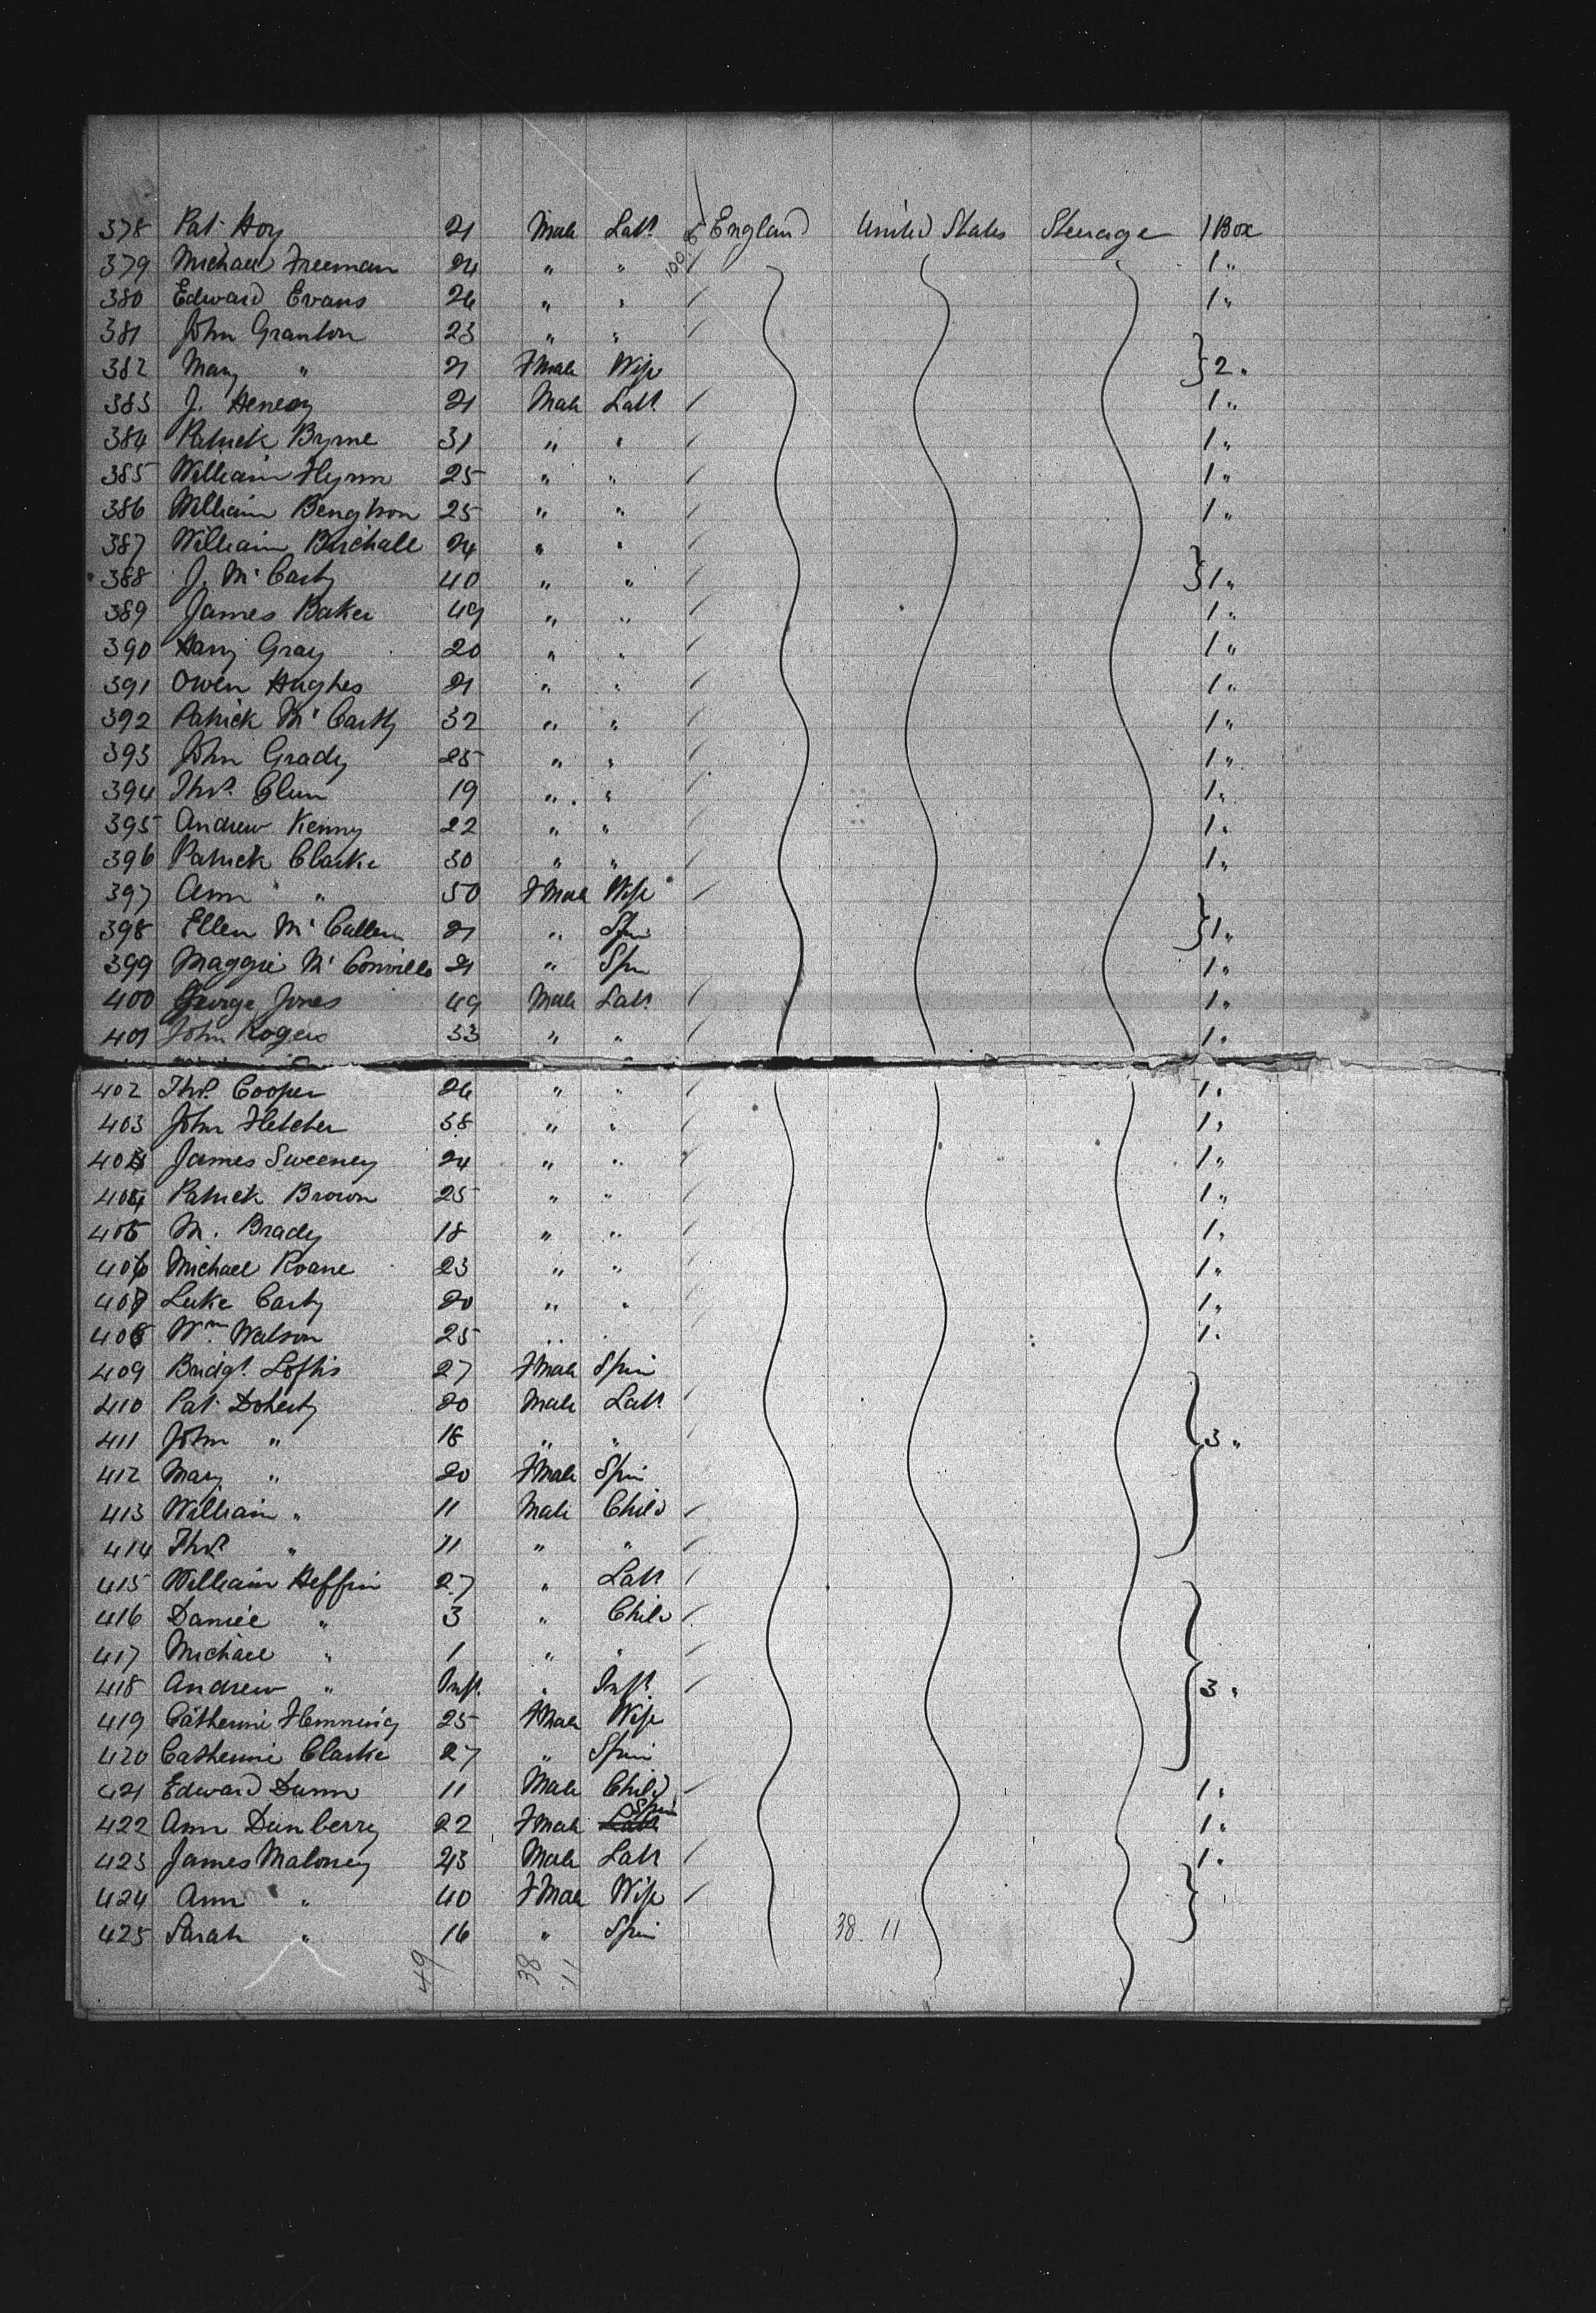 378 Pat Hoy 21 Male Labr England United States Steerage 1 Box
379 Michael Freeman 24 " " 1 "
380 Edward Evans 26 " " 1 "
381 John Granton 23 " "
382 Mary " 21 Fmale Wife } 2 "
383 J. Henesy 21 Male Labr 1 "
384 Patrick Byrne 31 " " 1 "
385 William Flynn 25 " " 1 "
386 William Bengtson 25 " " 1 "
387 William Birchall 24 " "
388 J. McCarty 40 " " } 1 "
389 James Baker 49 " " 1 "
390 Harry Gray 20 " " 1 "
391 Owen Hughes 21 " " 1 "
392 Patrick McCarthy 32 " " 1 "
393 John Grady 25 " " 1 "
394 Thos. Clun 19 " " 1 "
395 Andrew Kenny 22 " " 1 "
396 Patrick Clarke 30 " " 1 "
397 Ann " 50 Fmale Wife
398 Ellen McCullen 21 " Spin } 1 "
399 Maggie McConville 21 " Spin 1 "
400 George Jones 49 Male Labr 1 "
401 John Rogers 33 " " 1 "
402 Thos. Cooper 26 " " 1 "
403 John Fletcher 38 " " 1 "
403 James Sweeney 24 " " 1 "
404 Patrick Brown 25 " " 1 "
405 M. Brady 18 " " 1 "
406 Michael Roane 23 " " 1 "
407 Luke Carty 20 " " 1 "
408 Wm. Watson 25 " " 1 "
409 Bridgt. Loftis 27 Fmale Spin
410 Pat Doherty 20 Male Labr
411 John " 18 " " } 3 "
412 Mary " 20 Fmale Spin
413 William " 11 Male Child
414 Thos. " 11 " "
415 William Heffrin 27 " Labr
416 Daniel " 3 " Child
417 Michael " 1 " "
418 Andrew " Inft. " Inft. } 3 "
419 Catherine Flemming 25 Fmale Wife
420 Catherine Clarke 27 " Spin
421 Edward Dunn 11 Male Child 1 "
422 Ann Dunberry 22 Fmale Spin 1 "
423 James Maloney 43 Male Labr 1 "
424 Ann " 40 Fmale Wife }
425 Sarah " 16 " Spin 38 11
49 38 11